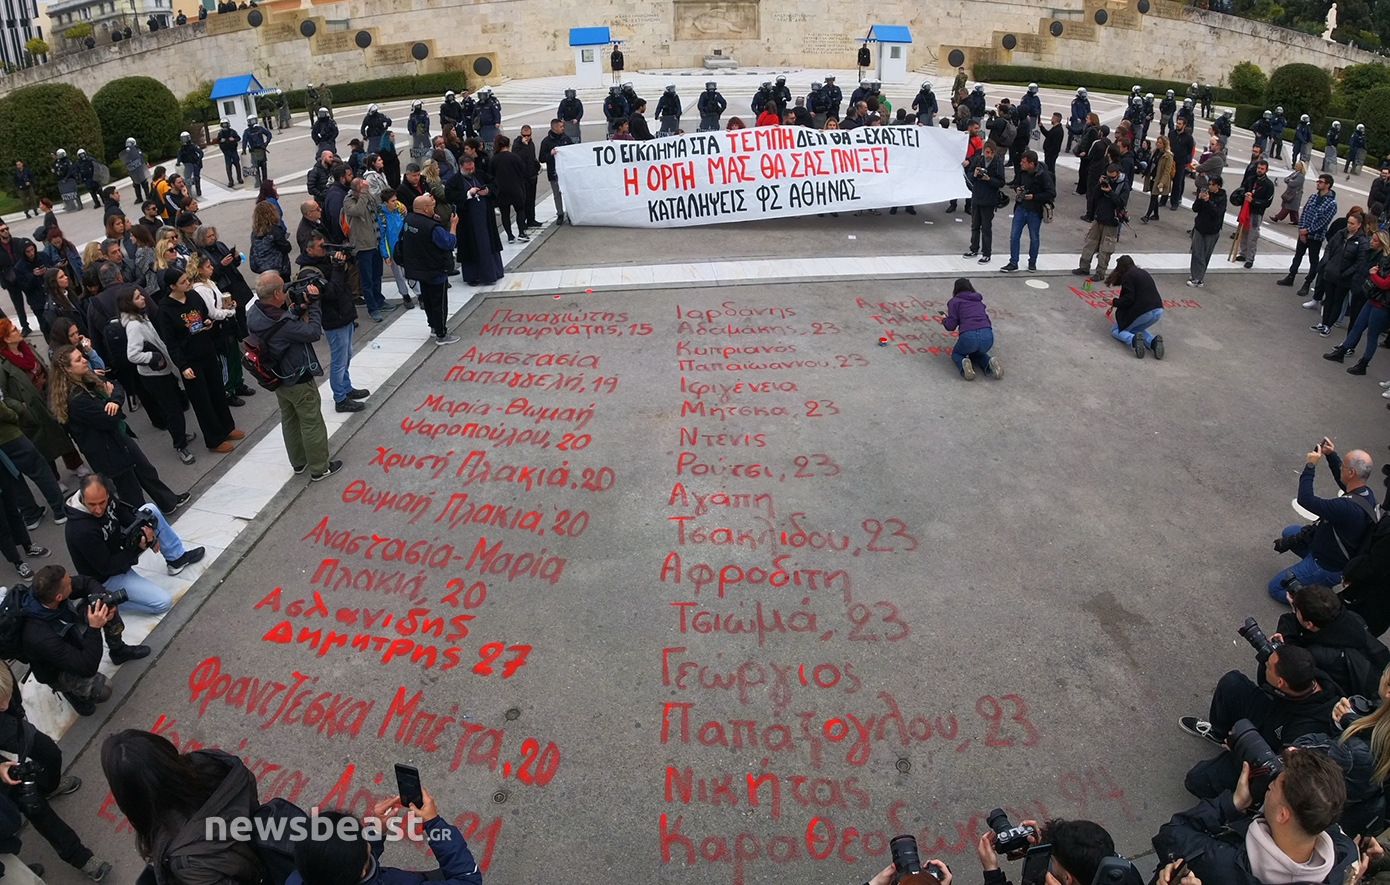 ΤΟ ΕΓΚΛΗΜΑ ΣΤΑ ΤΕΜΠΗ ΔΕΝ ΘΑ ΞΕΧΑΣΤΕΙ
Η ΟΡΓΗ ΜΑΣ ΘΑ ΣΑΣ ΠΝΙΞΕΙ
ΚΑΤΑΛΗΨΕΙΣ ΦΣ ΑΘΗΝΑΣ
Παναγιώτης
Μπουρνάτης, 15
Αναστασία
Παπαγγελή, 19
Μαρία-Θωμαή
Ψαροπούλου, 20
Χρυσή Πλακιά, 20
Θωμαή Πλακιά, 20
Αναστασία-Μαρία
Πλακιά, 20
Ασλανίδης
Δημήτρης 27
Φραντζέσκα Μπέζα, 20
Ιορδάνης
Αδαμάκης, 23
Κυπριανός
Παπαιωάννου, 23
Ιφιγένεια
Μήτσκα, 23
Ντενίς
Ρούτσι, 23
Αγάπη
Τσακλίδου, 23
Αφροδίτη
Τσιωμά, 23
Γεώργιος
Παπάζογλου, 23
Νικήτας
Καραθεοδώρου
Άγγελος
newsbeast.GR